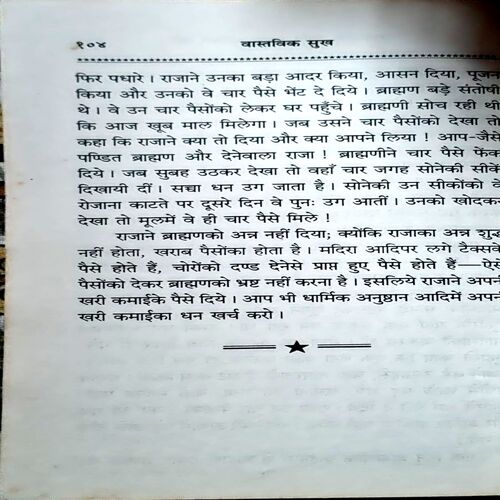 १०४ वास्तविक सुख
फिर पधारे । राजाने उनका बड़ा आदर किया, आसन दिया, पूजन
किया और उनको वे चार पैसे भेंट दे दिये । ब्राह्मण बड़े संतोषी
थे । वे उन चार पैसोंको लेकर घर पहुँचे । ब्राह्मणी सोच रही थी
कि आज खूब माल मिलेगा । जब उसने चार पैसोंको देखा तो
कहा कि राजाने क्या तो दिया और क्या आपने लिया ! आप-जैसे
पण्डित ब्राह्मण और देनेवाला राजा ! ब्राह्मणीने चार पैसे फेंक
दिये । जब सुबह उठकर देखा तो वहाँ चार जगह सोनेकी सीकें
दिखायी दीं । सच्चा धन उग जाता है । सोनेकी उन सीकोंको वे
रोजाना काटते पर दूसरे दिन वे पुनः उग आतीं । उनको खोदकर
देखा तो मूलमें वे ही चार पैसे मिले !
राजाने ब्राह्मणको अन्न नहीं दिया; क्योंकि राजाका अन्न शुद्ध
नहीं होता, खराब पैसोंका होता है । मदिरा आदिपर लगे टैक्सके
पैसे होते हैं, चोरोंको दण्ड देनेसे प्राप्त हुए पैसे होते हैं—ऐसे
पैसोंको देकर ब्राह्मणको भ्रष्ट नहीं करना है । इसलिये राजाने अपनी
खरी कमाईके पैसे दिये । आप भी धार्मिक अनुष्ठान आदिमें अपनी
खरी कमाईका धन खर्च करो ।